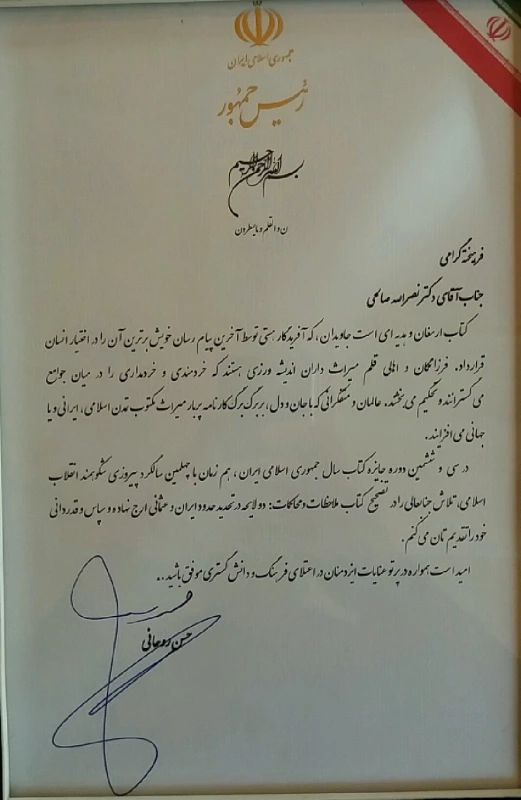 جمهوری اسلامی ایران
رئیس جمهور
بسم الله الرحمن الرحیم
ن و القلم و ما یسطرون
فرهیخته گرامی
جناب آقای دکتر نصرالله صالحی
کتاب ارمغان و هدیه ای است جاویدان، که آفریدگار هستی توسط آخرین پیام رسان خویش برترین آن را در اختیار انسان
قرار داد. فرزانگان و اهالی قلم میراث داران اندیشه ورزی هستند که خردمندی و خردمداری را در میان جوامع
می گسترانند و تحکیم می بخشند. عالمان و متفکرانی که با جان و دل، بر برگ برگ کارنامه پربار میراث مکتوب تمدن اسلامی، ایرانی و یا
جهانی می افزایند.
در سی و ششمین دوره جایزه کتاب سال جمهوری اسلامی ایران ، هم زمان با چهلمین سالگرد پیروزی شکوهمند انقلاب
اسلامی، تلاش جنابعالی را در تصحیح کتاب ملاحظات و محاکمات: دو لایحه در تحدید حدود ایران و عثمانی ارج نهاده و سپاس و قدردانی
خود را تقدیم تان می کنم .
امید است همواره در پرتو عنایات ایزد منان در اعتلای فرهنگ و دانش گستری موفق باشید..
حسن روحانی